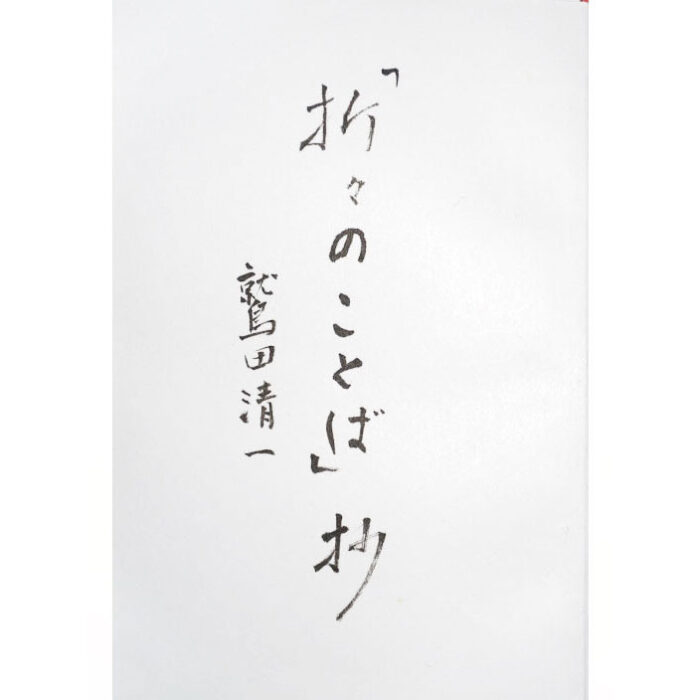 「折々のことば」抄
鷲田清一